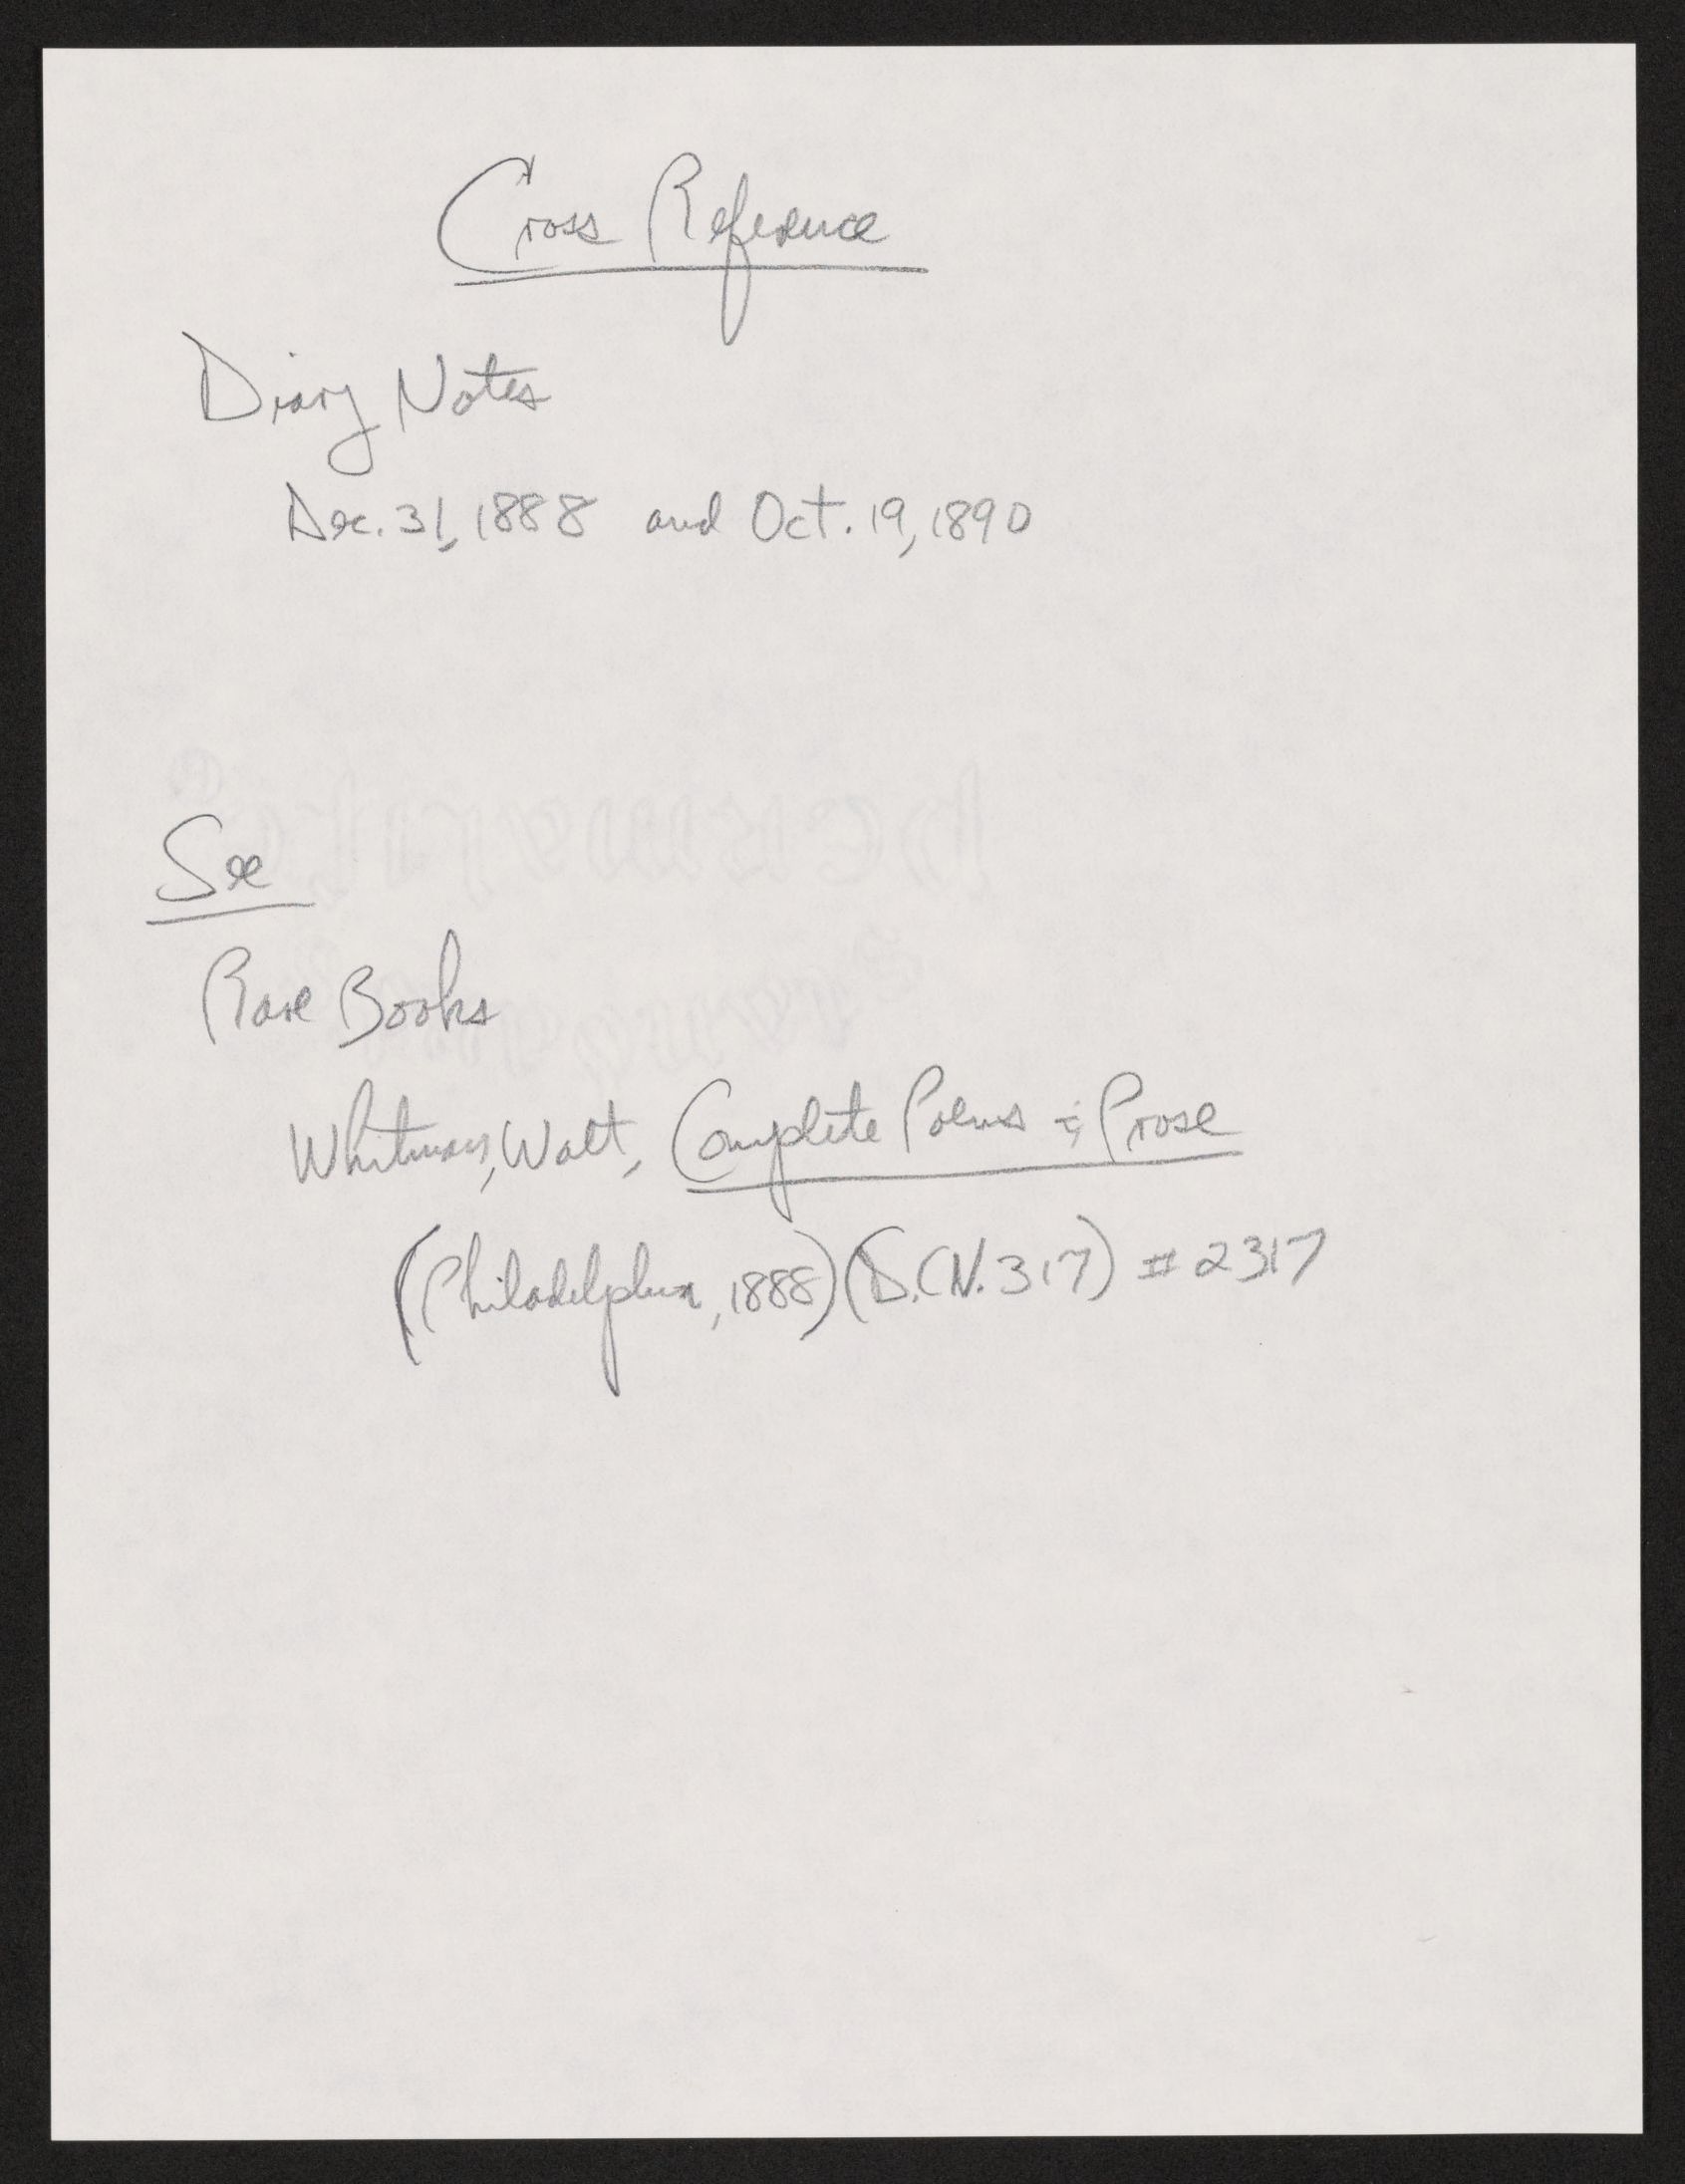 Cross Reference
Diary Notes
Dec. 31, 1888 and Oct. 19, 1890
See
Rare Books
Whitman, Walt, Complete Poems & Prose
(Philadelphia, 1888) (D.(N. 317) # 2317